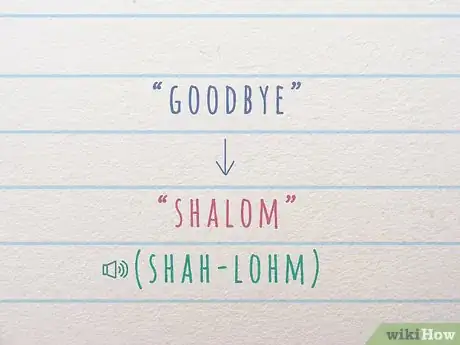 “GOODBYE”
“SHALOM”
(SHAH-LOHM)
wikiHow